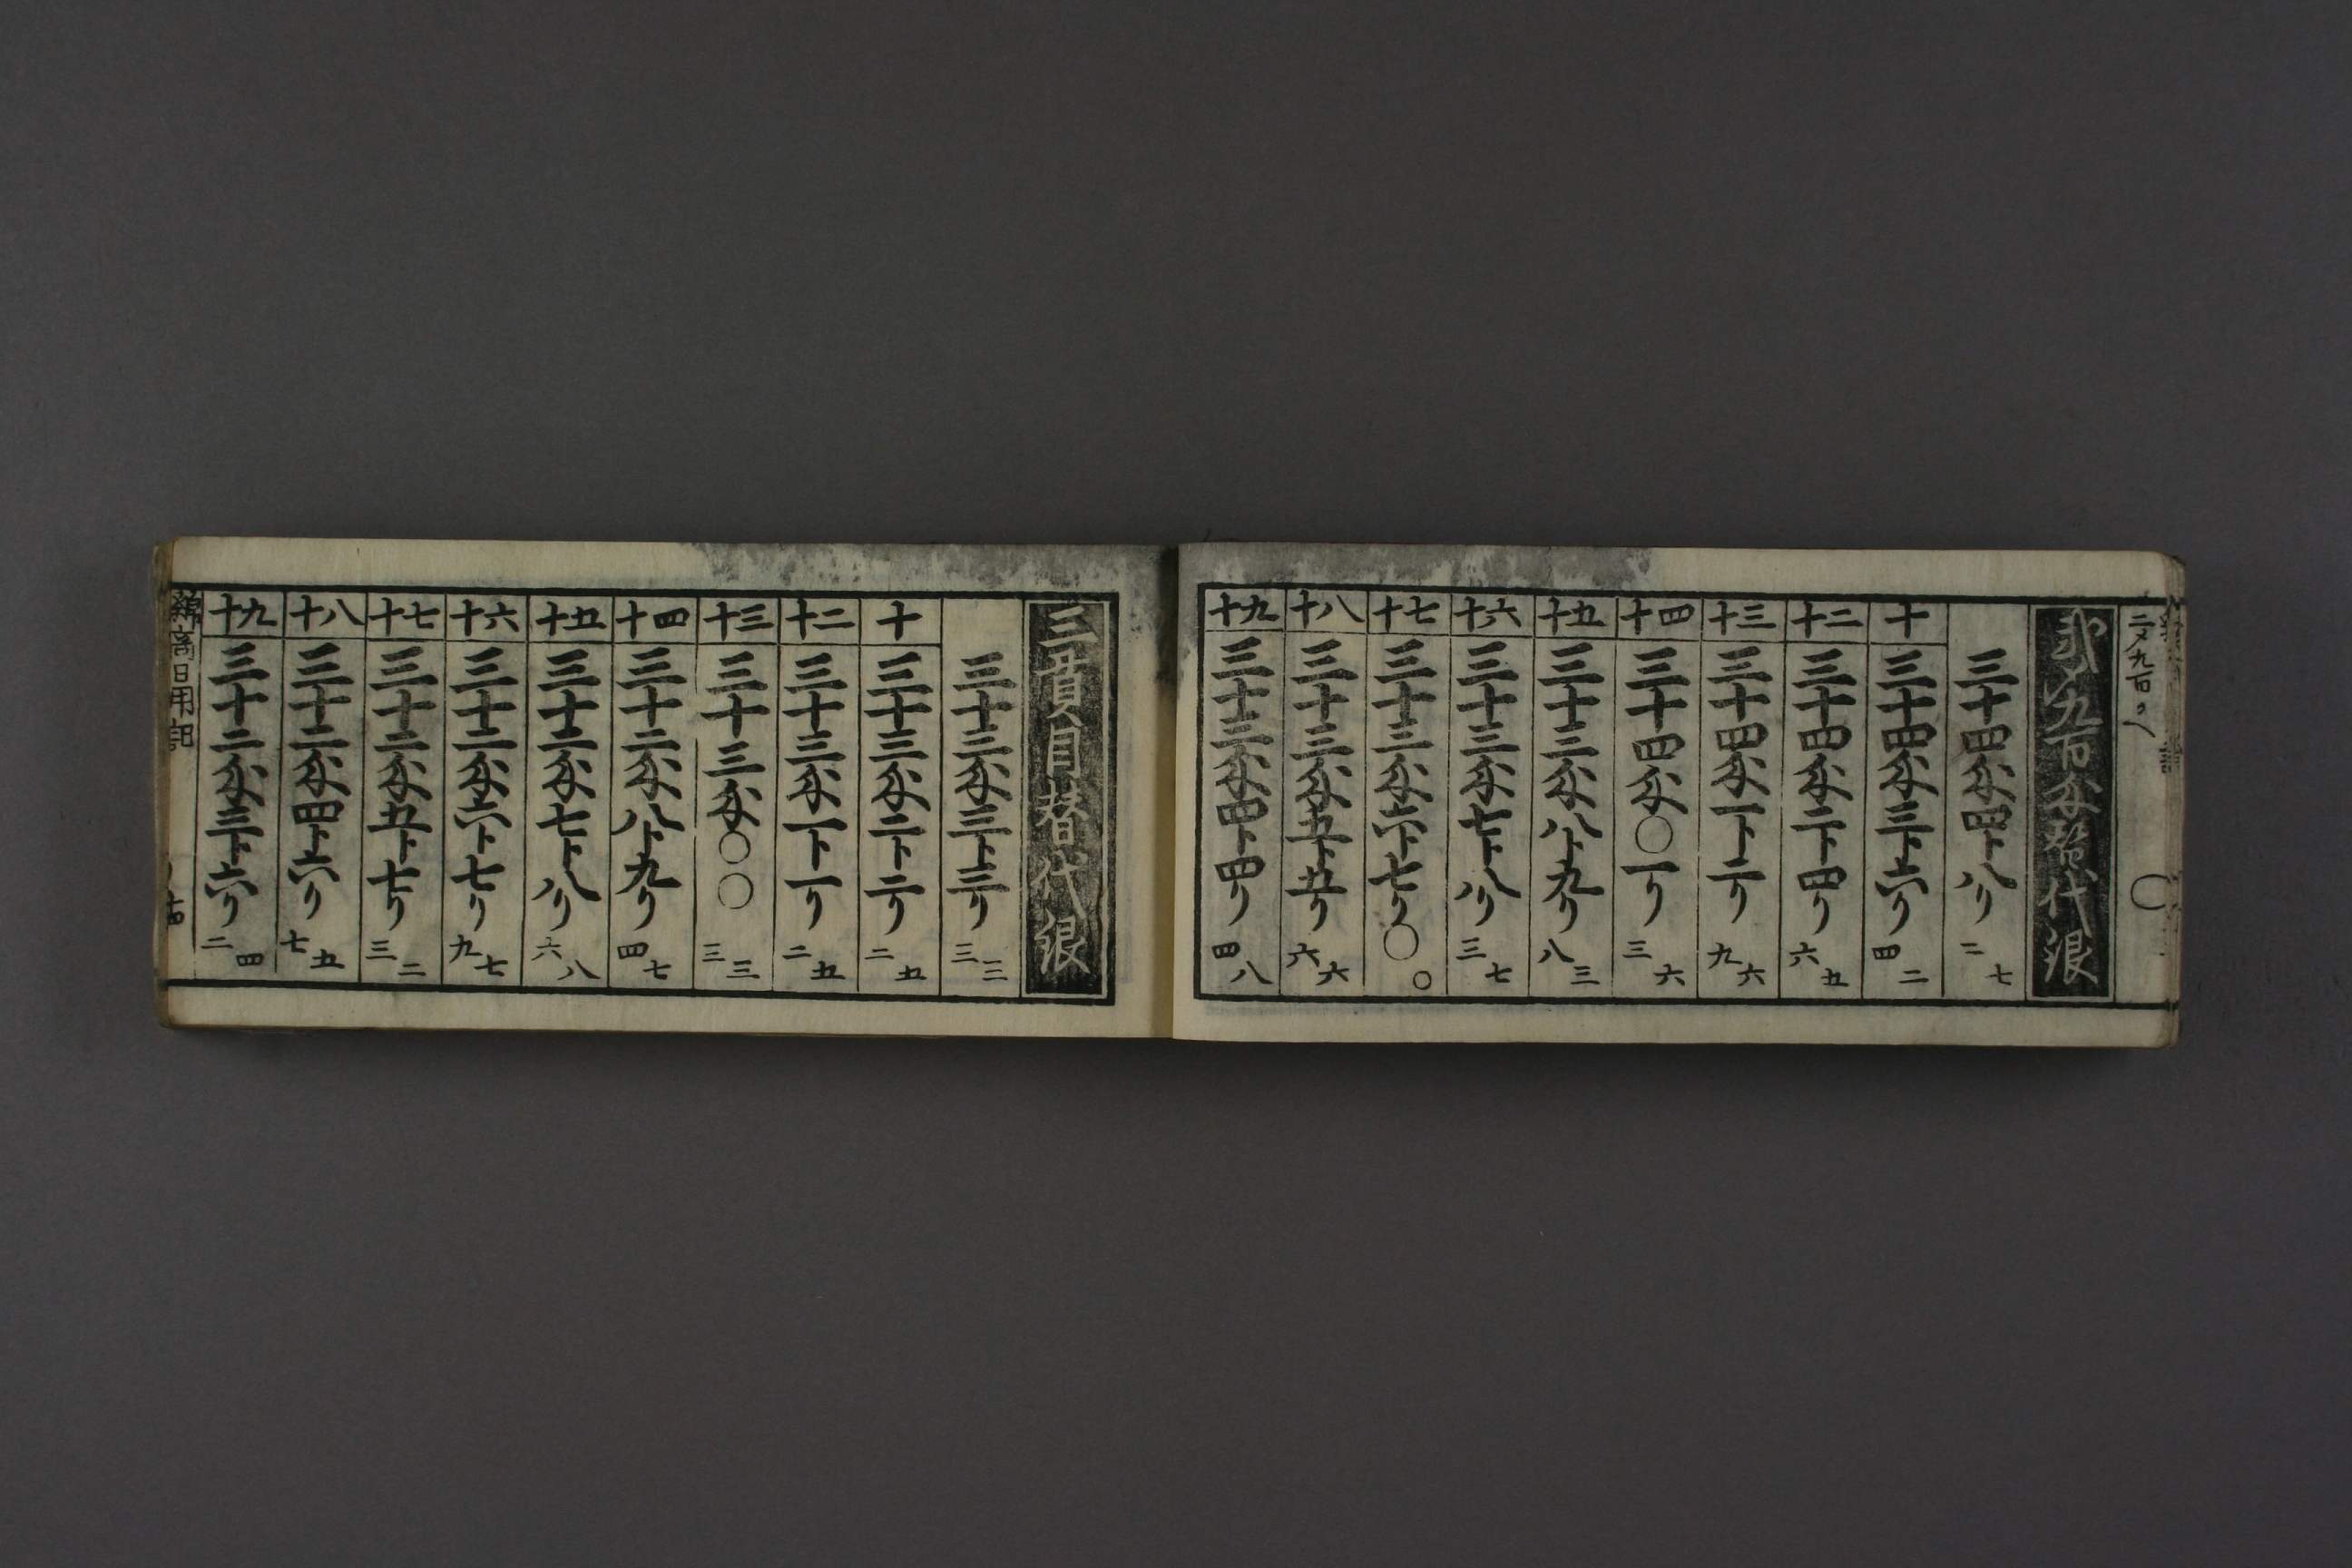 弐〆九百匁替代銀
三十四匁四分八リ二七
十 三十四匁三分六リ四二
十二 三十四匁二分四リ六五
十三 三十四匁一分二リ九六
十四 三十四匁〇一リ三六
十五 三十三匁八分九リ八三
十六 三十三匁七分八リ三七
十七 三十三匁六分七リ〇〇
十八 三十三匁五分五リ六六
十九 三十三匁四分四リ四八
三貫目替代銀
三十三匁三分三リ三三
十 三十三匁二分二リ二五
十二 三十三匁一分一リ二五
十三 三十三匁〇〇三三
十四 三十二匁八分九リ四七
十五 三十二匁七分八リ六八
十六 三十二匁六分七リ九七
十七 三十二匁五分七リ三二
十八 三十二匁四分六リ七五
十九 三十二匁三分六リ二四
商日用記